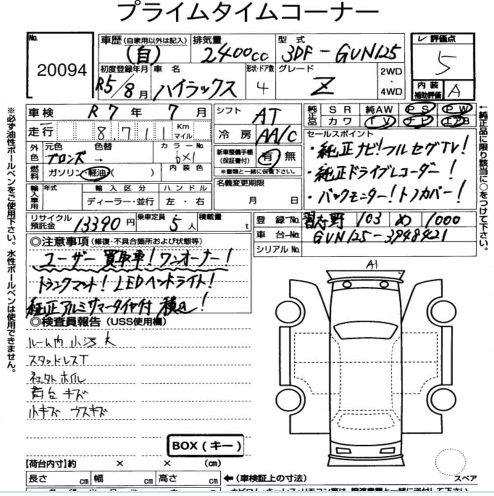 プライムタイムコーナー
No. 20094
車歴 (自家用以外は記入) (自)
排気量 2400cc
型式 3DF-GUN125
レ 評価点 5
初度登録年月 R5/8月
車名 ハイラックス
形状・ドア数 4
グレード Z
2WD・4WD
内装補助評価 A
車検 R7年7月
シフト AT
純正品 SR 純AW PS PW
カワ TV ナビ エアB
走行 8,711 Km マイル
冷房 AA/C
外色 元色 ブロンズ 色替 カラーNo. 6X1
燃料 ガソリン・軽油 内装色
新車整備手帳(保証書付) 有・無
※書類と一緒に保管下さい。
セールスポイント
・純正ナビ!フルセグTV!
・純正ドライブレコーダー!
・バックモニター!トノカバー!
輸入車 年式 輸入区分 ディーラー・並行 ハンドル 左・右
名義変更期限 月 日
リサイクル預託金 13390円
乗車定員 5人
積載量 t
登録No. 習志野 103 め 1000
車台No. GUN125-3948421
シリアルNo.
◎注意事項 (修復・不具合箇所および状態)
ユーザー買取車!ワンオーナー!
トランクマット!LEDヘッドライト!
純正アルミサマータイヤ付 積込!
◎検査員報告 (USS使用欄)
ルーム内 小汚れ
スタッドレスT
社外ホイル
荷台キズ
小キズ ウスキズ
A1
BOX(キー)
【荷台内寸】約 × × (cm)
長さ cm 幅 cm 高さ cm ←(車検証上の寸法)
スペア
※必ず油性ボールペンをご使用下さい。水性ボールペンは使用できません。
←純正品に限り該当に○をつけて下さい。